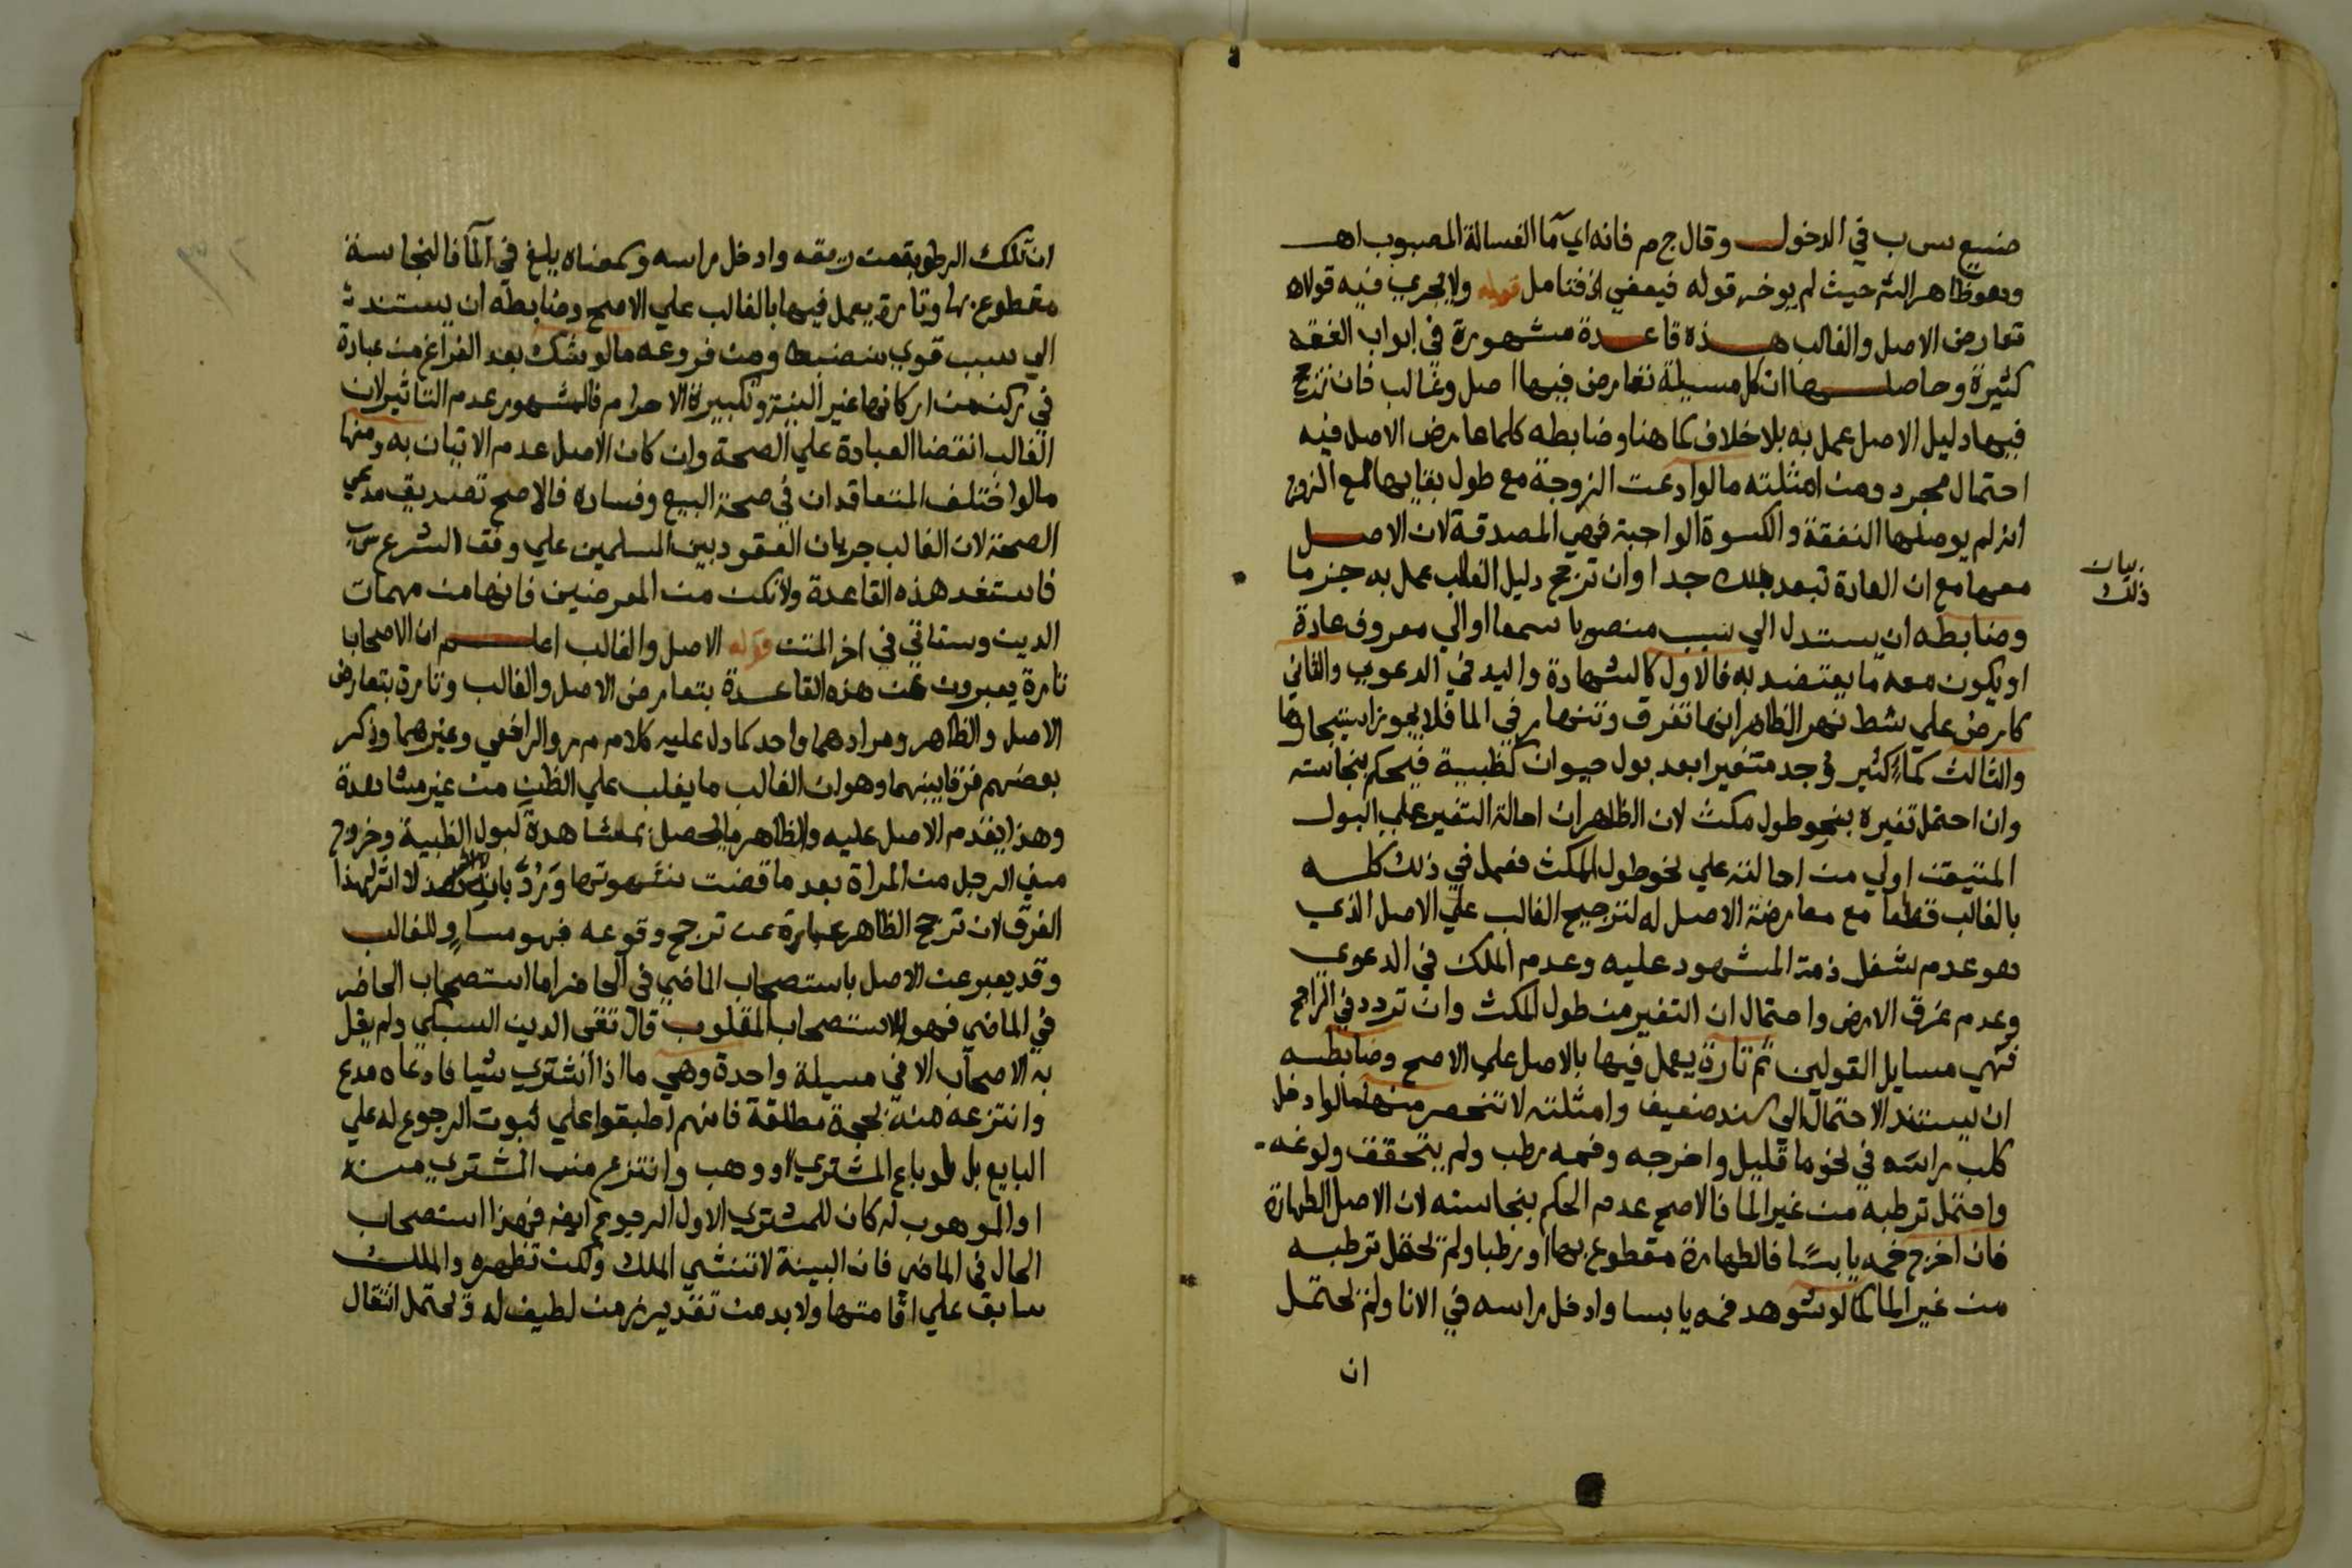 صنيع س ب في الدخول وقال ج م فانه اي ما الغسالة المصبوب اهـ
وهو ظاهر الشر حيث لم يوخر قوله فيعفي الخ فتامل قوله ولا يجري فيه قولاه
تعارض الاصل والغالب هذه قاعدة مشهورة في ابواب الفقه
كثيرة وحاصلها ان كل مسيلة تعارض فيها اصل وغالب فان ترجح
فيها دليل الاصل عمل به بلا خلاف كما هنا وضابطه كلما عارض الاصل فيه
احتمال مجرد ومن امثلته ما لو ادعت الزوجة مع طول بقايها مع الزوج
انه لم يوصلها النفقة والكسوة الواجبة فهي المصدقة لان الاصل
معها مع ان العادة تبعد ذلك جدا وان ترجح دليل الغالب عمل به جزما
بيان
ذلك
وضابطه ان يستدل الي سبب منصوبا سمعا او الي معروف عادة
او يكون معه ما يعتضد به فالاول كالشهادة واليد في الدعوي والثاني
كارض علي شط نهر الظاهر انها تغرق وتنهار في الما فلا يجوز استيجارها
والثالث كماء كثير وجد متغيرا بعد بول حيوان كظبية فيحكم بنجاسته
وان احتمل تغيره بنحو طول مكث لان الظاهر ان احالة التغير علي البول
المتيقن اولي من احالته علي نحو طول المكث فعمل في ذلك كله
بالغالب قطعا مع معارضة الاصل له لترجيح الغالب علي الاصل الذي
هو عدم شغل ذمة المشهود عليه وعدم الملك في الدعوي
وعدم غرق الارض واحتمال ان التغير من طول المكث وان تردد في الراجح
فهي مسايل القولين ثم تارة يعمل فيها بالاصل علي الاصح وضابطه
ان يستند الاحتمال الي سند ضعيف وامثلته لا تنحصر منها ما لو ادخل
كلب راسه في نحو ما قليل واخرجه وفمه رطب ولم يتحقق ولوغه
واحتمل ترطبه من غير الما فالاصح عدم الحكم بنجاسته لان الاصل الطهارة
فان اخرج فمه يابسا فالطهارة مقطوع بها او رطبا ولم يحتمل ترطبه
من غير الما كما لو شوهد فمه يابسا وادخل راسه في الانا ولم يحتمل
ان
ان تلك الرطوبة من ريقه وادخل راسه وسمعناه يلغ في الماء فالنجاسة
مقطوع بها وتارة يعمل فيها بالغالب علي الاصح وضابطه ان يستند
الي سبب قوي ينضبط ومن فروعه ما لو شك بعد الفراغ من عبادة
في ركن من اركانها غير النية وتكبيرة الاحرام فالمشهور عدم التاثير لان
الغالب انقضا العبادة علي الصحة وان كان الاصل عدم الاتيان به ومنها
ما لو اختلف المتعاقدان في صحة البيع وفساده فالاصح تصديق مدعي
الصحة لان الغالب جريان العقود بين المسلمين علي وفق الشرع س ب
فاستفد هذه القاعدة ولا تكن من المعرضين فانها من مهمات
الدين وستاتي في اخر المتن قوله الاصل والغالب اعلم ان الاصحاب
تارة يعبرون عن هذه القاعدة بتعارض الاصل والغالب وتارة بتعارض
الاصل والظاهر ومرادهما واحد كما دل عليه كلام م ر والرافعي وغيرهما وذكر
بعضهم فرقا بينهما وهو ان الغالب ما يغلب علي الظن من غير مشاهدة
وهذا يقدم الاصل عليه والظاهر ما يحصل بمشاهدة كبول الظبية وخروج
مني الرجل من المراة بعد ما قضت شهوتها ورد بانه لا اثر لهذا
الفرق لان ترجح الظاهر عبارة عن ترجح وقوعه فهو مساو للغالب
وقد يعبر عن الاصل باستصحاب الماضي في الحاضر اما استصحاب الحاضر
في الماضي فهو الاستصحاب المقلوب قال تقى الدين السبكي ولم يقل
به الاصحاب الا في مسيلة واحدة وهي ما اذا اشتري شيا فادعاه مدع
وانتزعه منه بحجة مطلقة فانهم اطبقوا علي ثبوت الرجوع له علي
البايع بل لو باع المشتري او وهب وانتزع من المشتري منه
او الموهوب له كان للمشتري الاول الرجوع ايضا فهذا استصحاب
الحال في الماضي فان البينة لا تنشي الملك ولكن تظهره والملك
سابق علي اقامتها ولا بد من تقدير زمن لطيف له ويحتمل انتقال